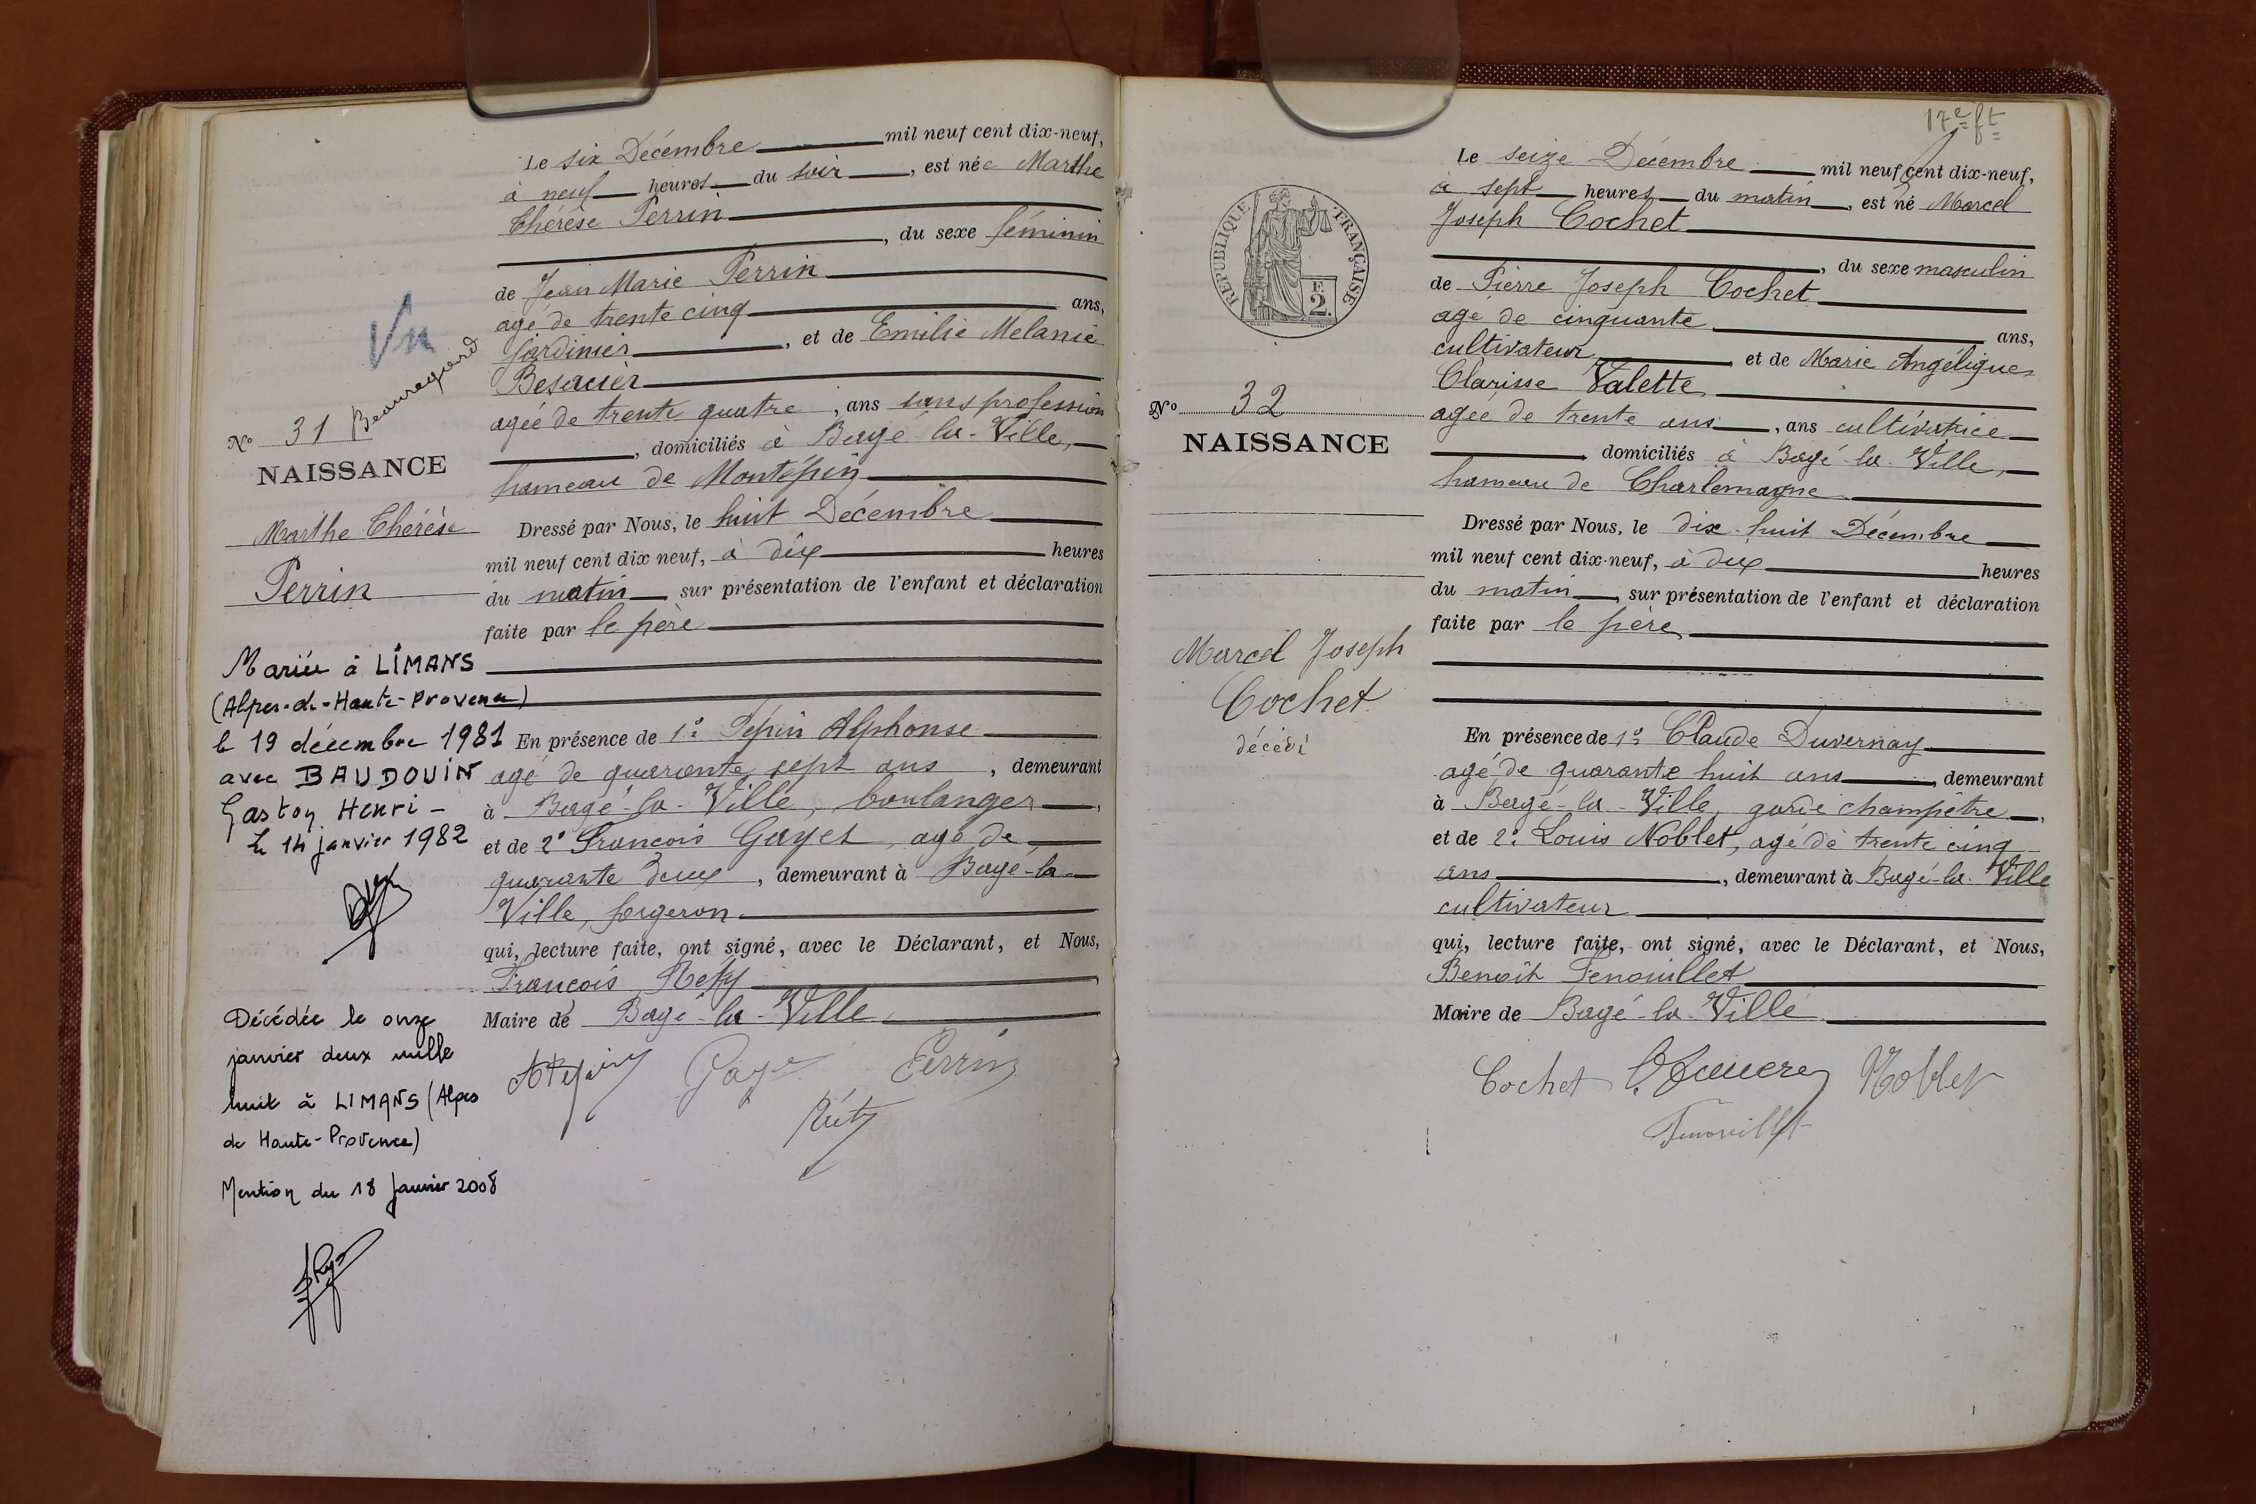 Le six Décembre mil neuf cent dix-neuf,
à neuf heures du soir, est née Marthe
Thérèse Perrin
, du sexe féminin
de Jean Marie Perrin
agé de trente cinq ans,
jardinier, et de Emilie Mélanie
Besacier
agée de trente quatre, ans sans profession
, domiciliés à Bagé-la-Ville,
hameau de Montépin
Dressé par Nous, le huit Décembre
mil neuf cent dix neuf, à dix heures
du matin sur présentation de l'enfant et déclaration
faite par le père
En présence de 1º Pépin Alphonse
agé de quarante sept ans, demeurant
à Bagé-la-Ville, boulanger,
et de 2º François Gayet, agé de
quarante deux, demeurant à Bagé-la-
Ville, forgeron
qui, lecture faite, ont signé, avec le Déclarant, et Nous,
François
Maire de Bagé-la-Ville
Perrin
Vu
Nº 31 Beauregard
NAISSANCE
Marthe Thérèse
Perrin
Mariée à LIMANS
(Alpes-de-Haute-Provence)
le 19 décembre 1981
avec BAUDOUIN
Gaston Henri -
Le 14 janvier 1982
Décédée le onze
janvier deux mille
huit à LIMANS (Alpes
de Haute-Provence)
Mention du 18 Janvier 2008
17e ft
RÉPUBLIQUE FRANÇAISE
F.
2.
Nº 32
NAISSANCE
Marcel Joseph
Cochet
décédé
Le seize Décembre mil neuf cent dix-neuf,
à sept heures du matin, est né Marcel
Joseph Cochet
, du sexe masculin
de Pierre Joseph Cochet
agé de cinquante ans,
cultivateur et de Marie Angélique
Clarisse Valette
agée de trente ans, ans cultivatrice
domiciliés à Bagé-la-Ville,
hameau de Charlemagne
Dressé par Nous, le dix-huit Décembre
mil neuf cent dix-neuf, à dix heures
du matin, sur présentation de l'enfant et déclaration
faite par le père
En présence de 1º Claude Duvernay
agé de quarante huit ans, demeurant
à Bagé-la-Ville, garde champêtre,
et de 2º Louis Noblet, agé de trente cinq
ans, demeurant à Bagé-la-Ville
cultivateur
qui, lecture faite, ont signé, avec le Déclarant, et Nous,
Benoît Fenouillet
Maire de Bagé-la-Ville
Cochet Noblet
Fenouillet